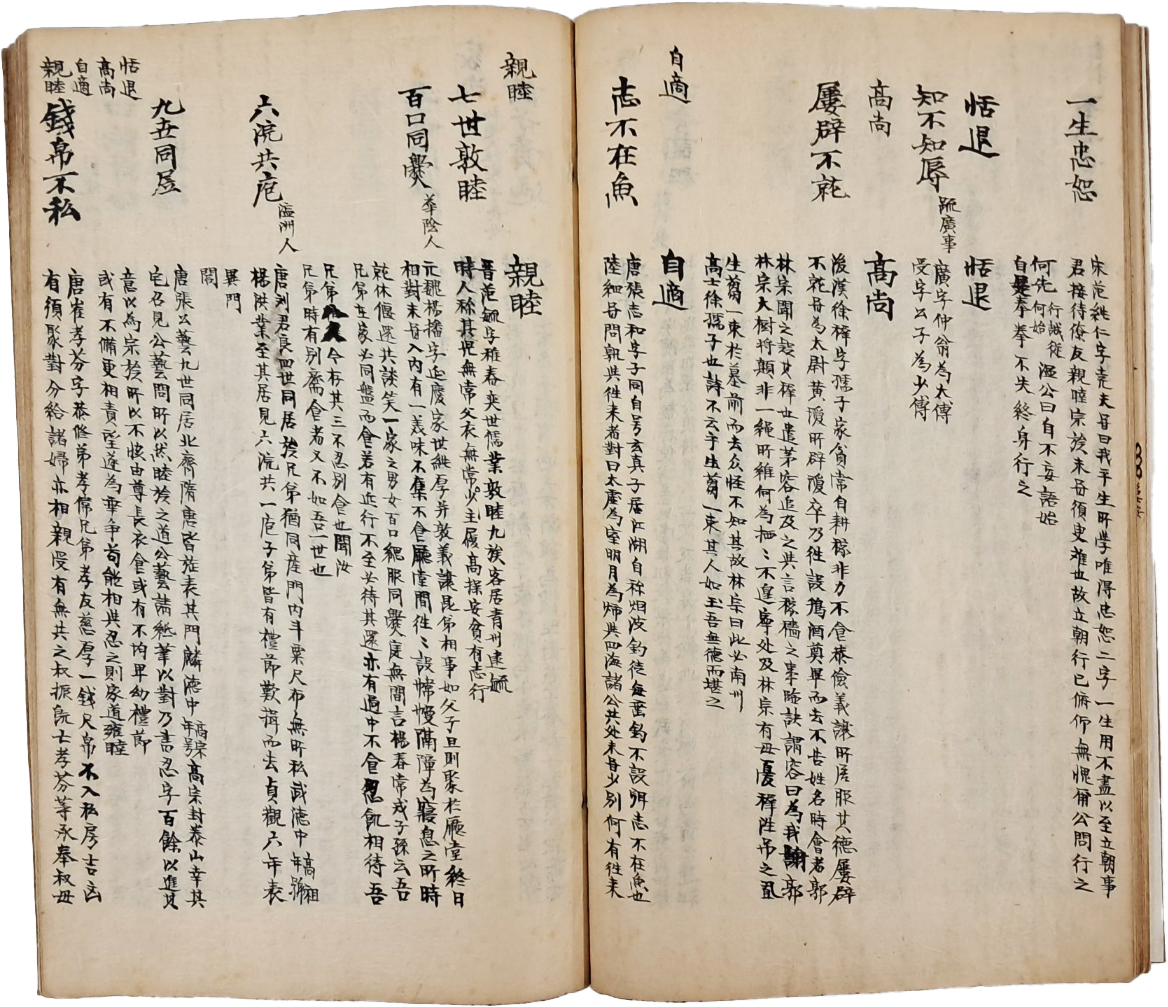 一生忠恕
宋范純仁字堯夫嘗曰我平生所學唯得忠恕二字一生用不盡以至立朝事
君接待僚友親睦宗族未嘗須臾離也故立朝行已俯仰無愧爾公問行之
何先 行誠從何始 溫公曰自不妄語始
自是拳拳不失終身行之
恬退
恬退
知不知辱 疏廣事
廣字仲翁為太傅
受字公子為少傅
高尚
高尚
屢辟不就
後漢徐稚字孺子家貧常自耕稼非力不食恭儉義讓所居服其德屢辟
不就嘗為太尉黃瓊所辟瓊卒乃徃設鷄酒奠畢而去不告姓名時會者郭
林宗聞之疑其稚也遣茅容追及之共言稼穡之事臨訣謂容曰為我謝郭
林宗大樹將顛非一繩所維何為栖〻不遑寧處及林宗有母憂稚徃吊之置
生芻一束於墓前而去众怪不知其故林宗曰此必南州
高士徐孺子也詩不云乎生芻一束其人如玉吾無德而堪之
自適
自適
志不在魚
唐張志和字子同自号玄真子居江湖自称烟波釣徒每垂釣不設餌志不在魚也
陸羽嘗問孰與徃来者對曰太虛為室明月為燭與四海諸公共处未嘗少别何有徃来
親睦
親睦
七世敦睦
晉范毓字稚春奕世儒業敦睦九族客居青州逮毓
時人称其児無常父衣無常主少履高操安貧有志行
百口同爨 華陰人
元魏楊播字延慶家世純厚并敦義讓昆弟相事如父子旦則聚於廳堂終日
相對未嘗入内有一美味不集不食廳堂間徃〻設幃幔隔障為寢息之所時
就休偃還共談笑一家之男女百口緦服同爨庭無間言楊春常戒子孫云吾
兄弟在家必同盤而食若有近行不至必待其還亦有過中不食忍飢相待吾
兄弟八人今存其三不忍别食也聞汝
兄弟時有别齋食者又不如吾一世也
六院共庖 瀛洲人
唐刘君良四世同居族兄弟猶同産門内斗粟尺布無所私武德中 高祖年號
楊洪業至其居見六院共一庖子弟皆有禮節歎揖而去貞觀六年表
異門
閭
九世同居
唐張公藝九世同居北齊隋唐皆旌表其門麟德中 高宗年号 高宗封泰山幸其
宅召見公藝問所以然睦族之道公藝請紙筆以對乃書忍字百餘以進其
意以為宗族所以不恊由尊長衣食或有不均卑幼禮節
或有不備更相責望遂為乖爭苟能相與忍之則家道雍睦
錢帛不私
唐崔孝芬字恭修弟孝偉兄弟孝友慈厚一錢尺帛不入私房吉凶
有須聚對分給諸婦亦相親愛有無共之叔振既亡孝芬等承奉叔母
恬退
高尚
自適
親睦